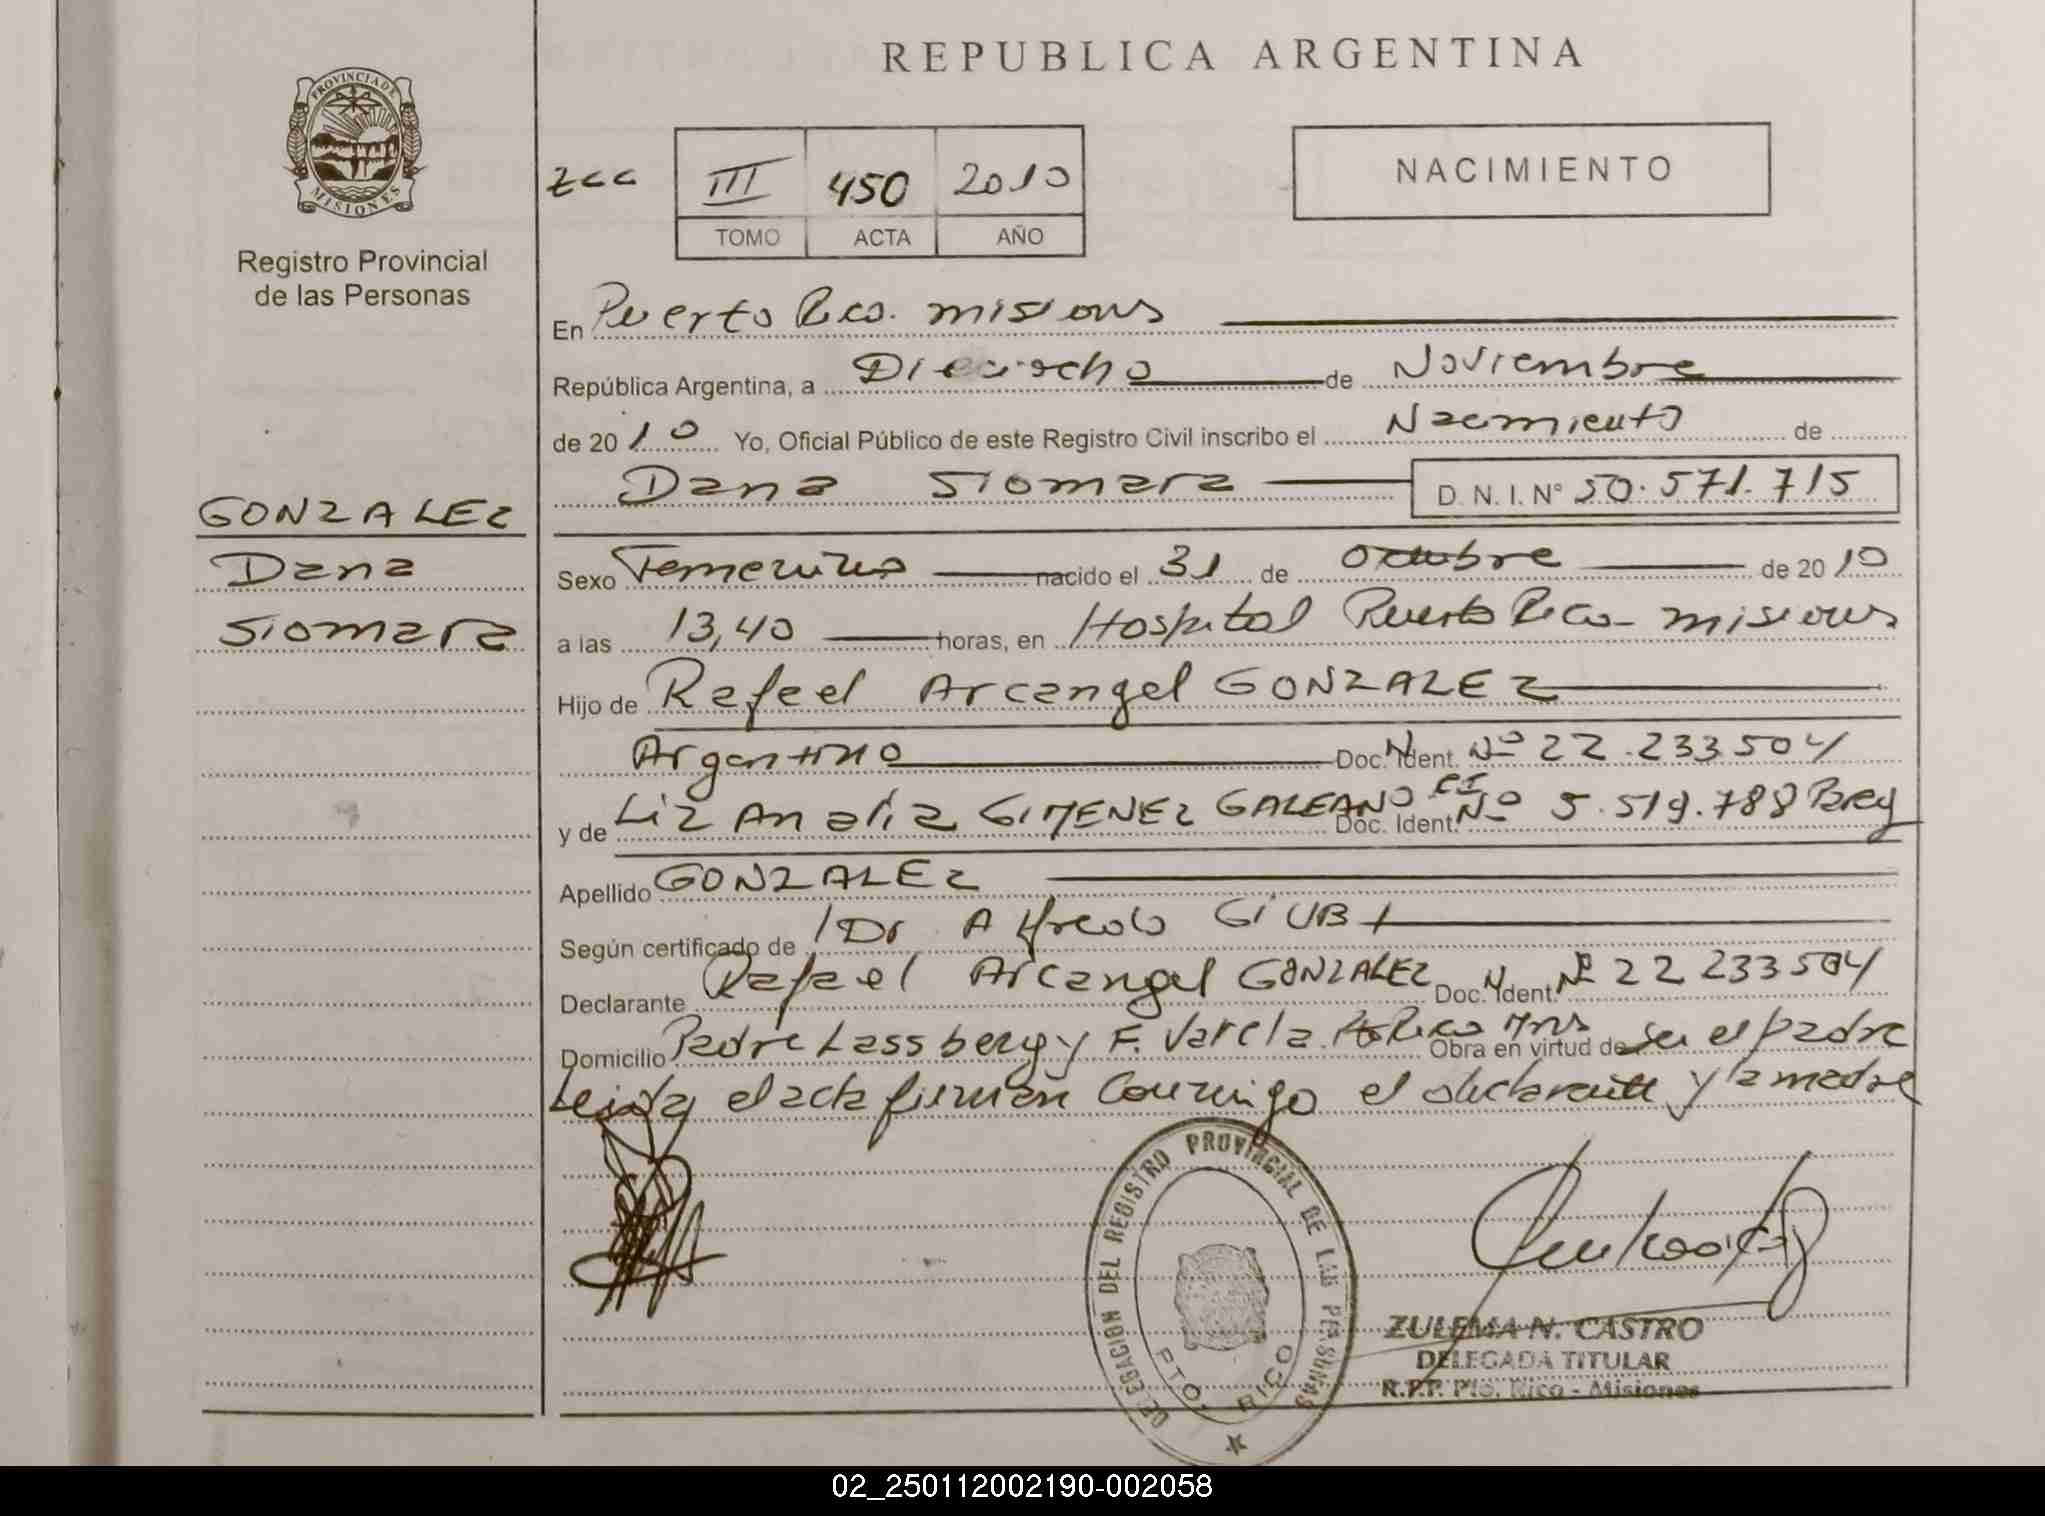 REPUBLICA ARGENTINA
PROVINCIA DE
MISIONES
Registro Provincial
de las Personas
III 450 2010
TOMO ACTA AÑO
NACIMIENTO
En Puerto Rico. misiones
República Argentina, a Dieciocho de Noviembre
de 2010 Yo, Oficial Público de este Registro Civil inscribo el Nacimiento de
Dana Siomara D. N. I. Nº 50.571.715
GONZALEZ
Dana
Siomara
Sexo Femenino nacido el 31 de Octubre de 2010
a las 13,40 horas, en Hospital Puerto Rico - misiones
Hijo de Rafael Arcangel GONZALEZ
Argentino Doc. N Ident. Nº 22.233504
y de Liz Analia GIMENEZ GALEANO Doc. Ident. CI Nº 5.519.788 Parg
Apellido GONZALEZ
Según certificado de Dr Alfredo GIUBI
Declarante Rafael Arcangel GONZALEZ Doc. N Ident. Nº 22 233504
Domicilio Padre Lassberg y F. Varela. Pto Rico Mns Obra en virtud de ser el padre
Leida el acta firman conmigo el declarante y la madre
DELEGACION DEL REGISTRO PROVINCIAL DE LAS PERSONAS
PTO. RICO
ZULEMA N. CASTRO
DELEGADA TITULAR
R.P.P. Pto. Rico - Misiones
02_250112002190-002058